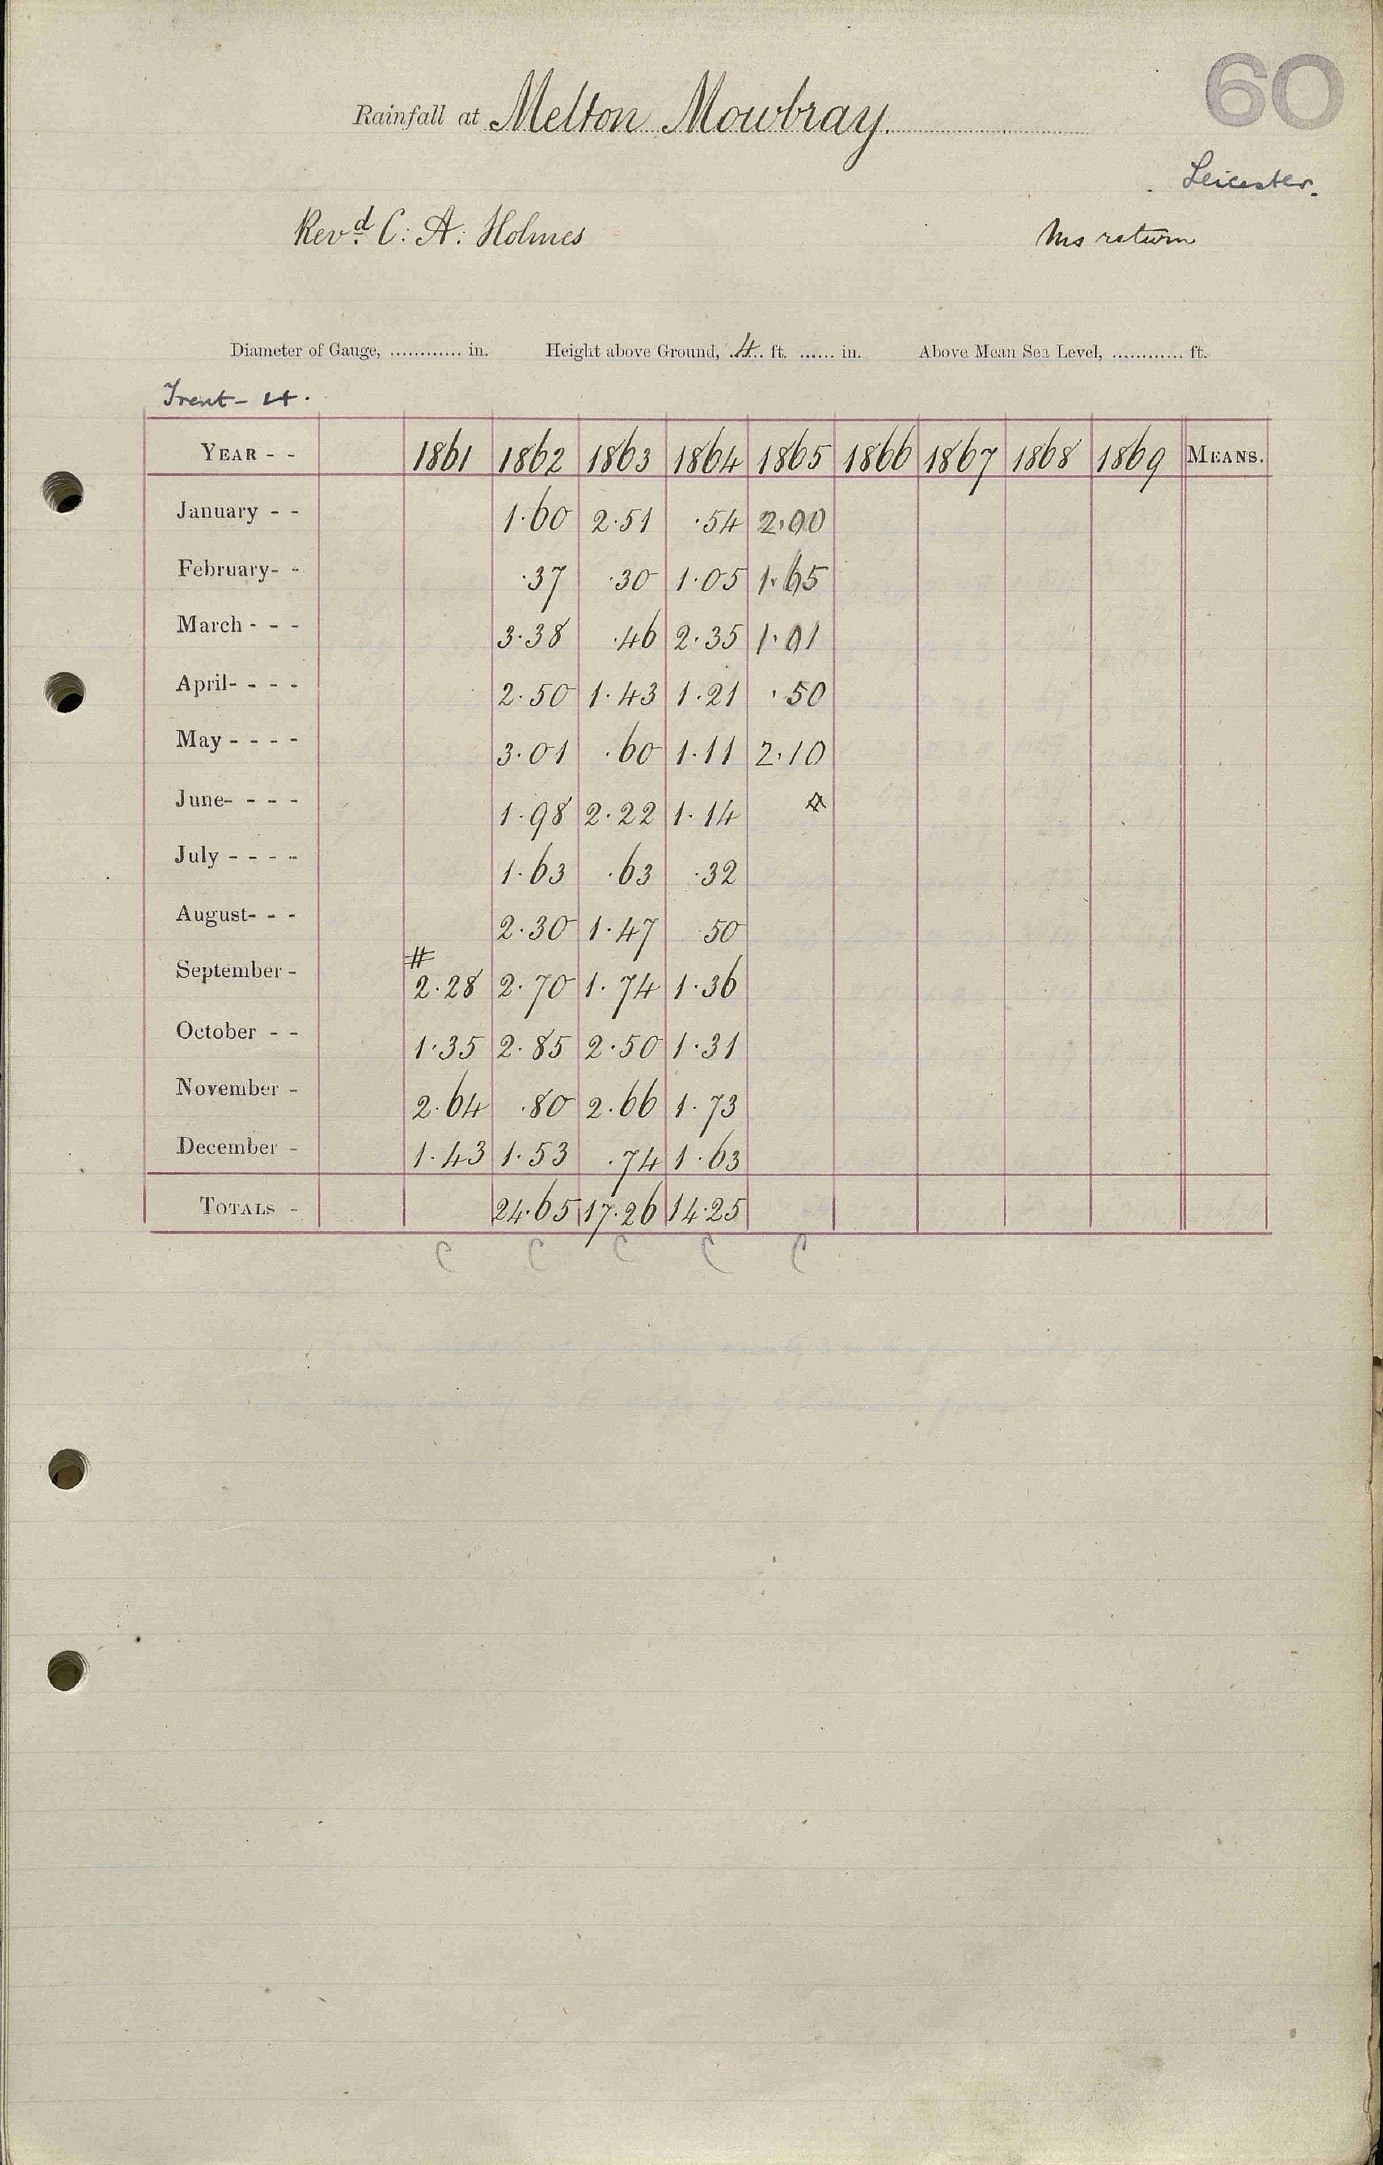 60
Rainfall at Melton Mowbray.
Leicester.
Revd. C: A: Holmes
Ms return
Diameter of Gauge, ............ in. Height above Ground, 4 ft. ...... in. Above Mean Sea Level, ............ ft.
Trent
YEAR - - 1861 1862 1863 1864 1865 1866 1867 1868 1869 MEANS.
January - - 1.60 2.51 .54 2.00
February- - .37 .30 1.05 1.65
March - - - 3.38 .46 2.35 1.01
April- - - - 2.50 1.43 1.21 .50
May - - - - 3.01 .60 1.11 2.10
June- - - - 1.98 2.22 1.14
July - - - - 1.63 .63 .32
August- - - 2.30 1.47 50
#
September - 2.28 2.70 1.74 1.36
October - - 1.35 2.85 2.50 1.31
November - 2.64 .80 2.66 1.73
December - 1.43 1.53 .74 1.63
TOTALS - 24.65 17.26 14.25
C C C C C